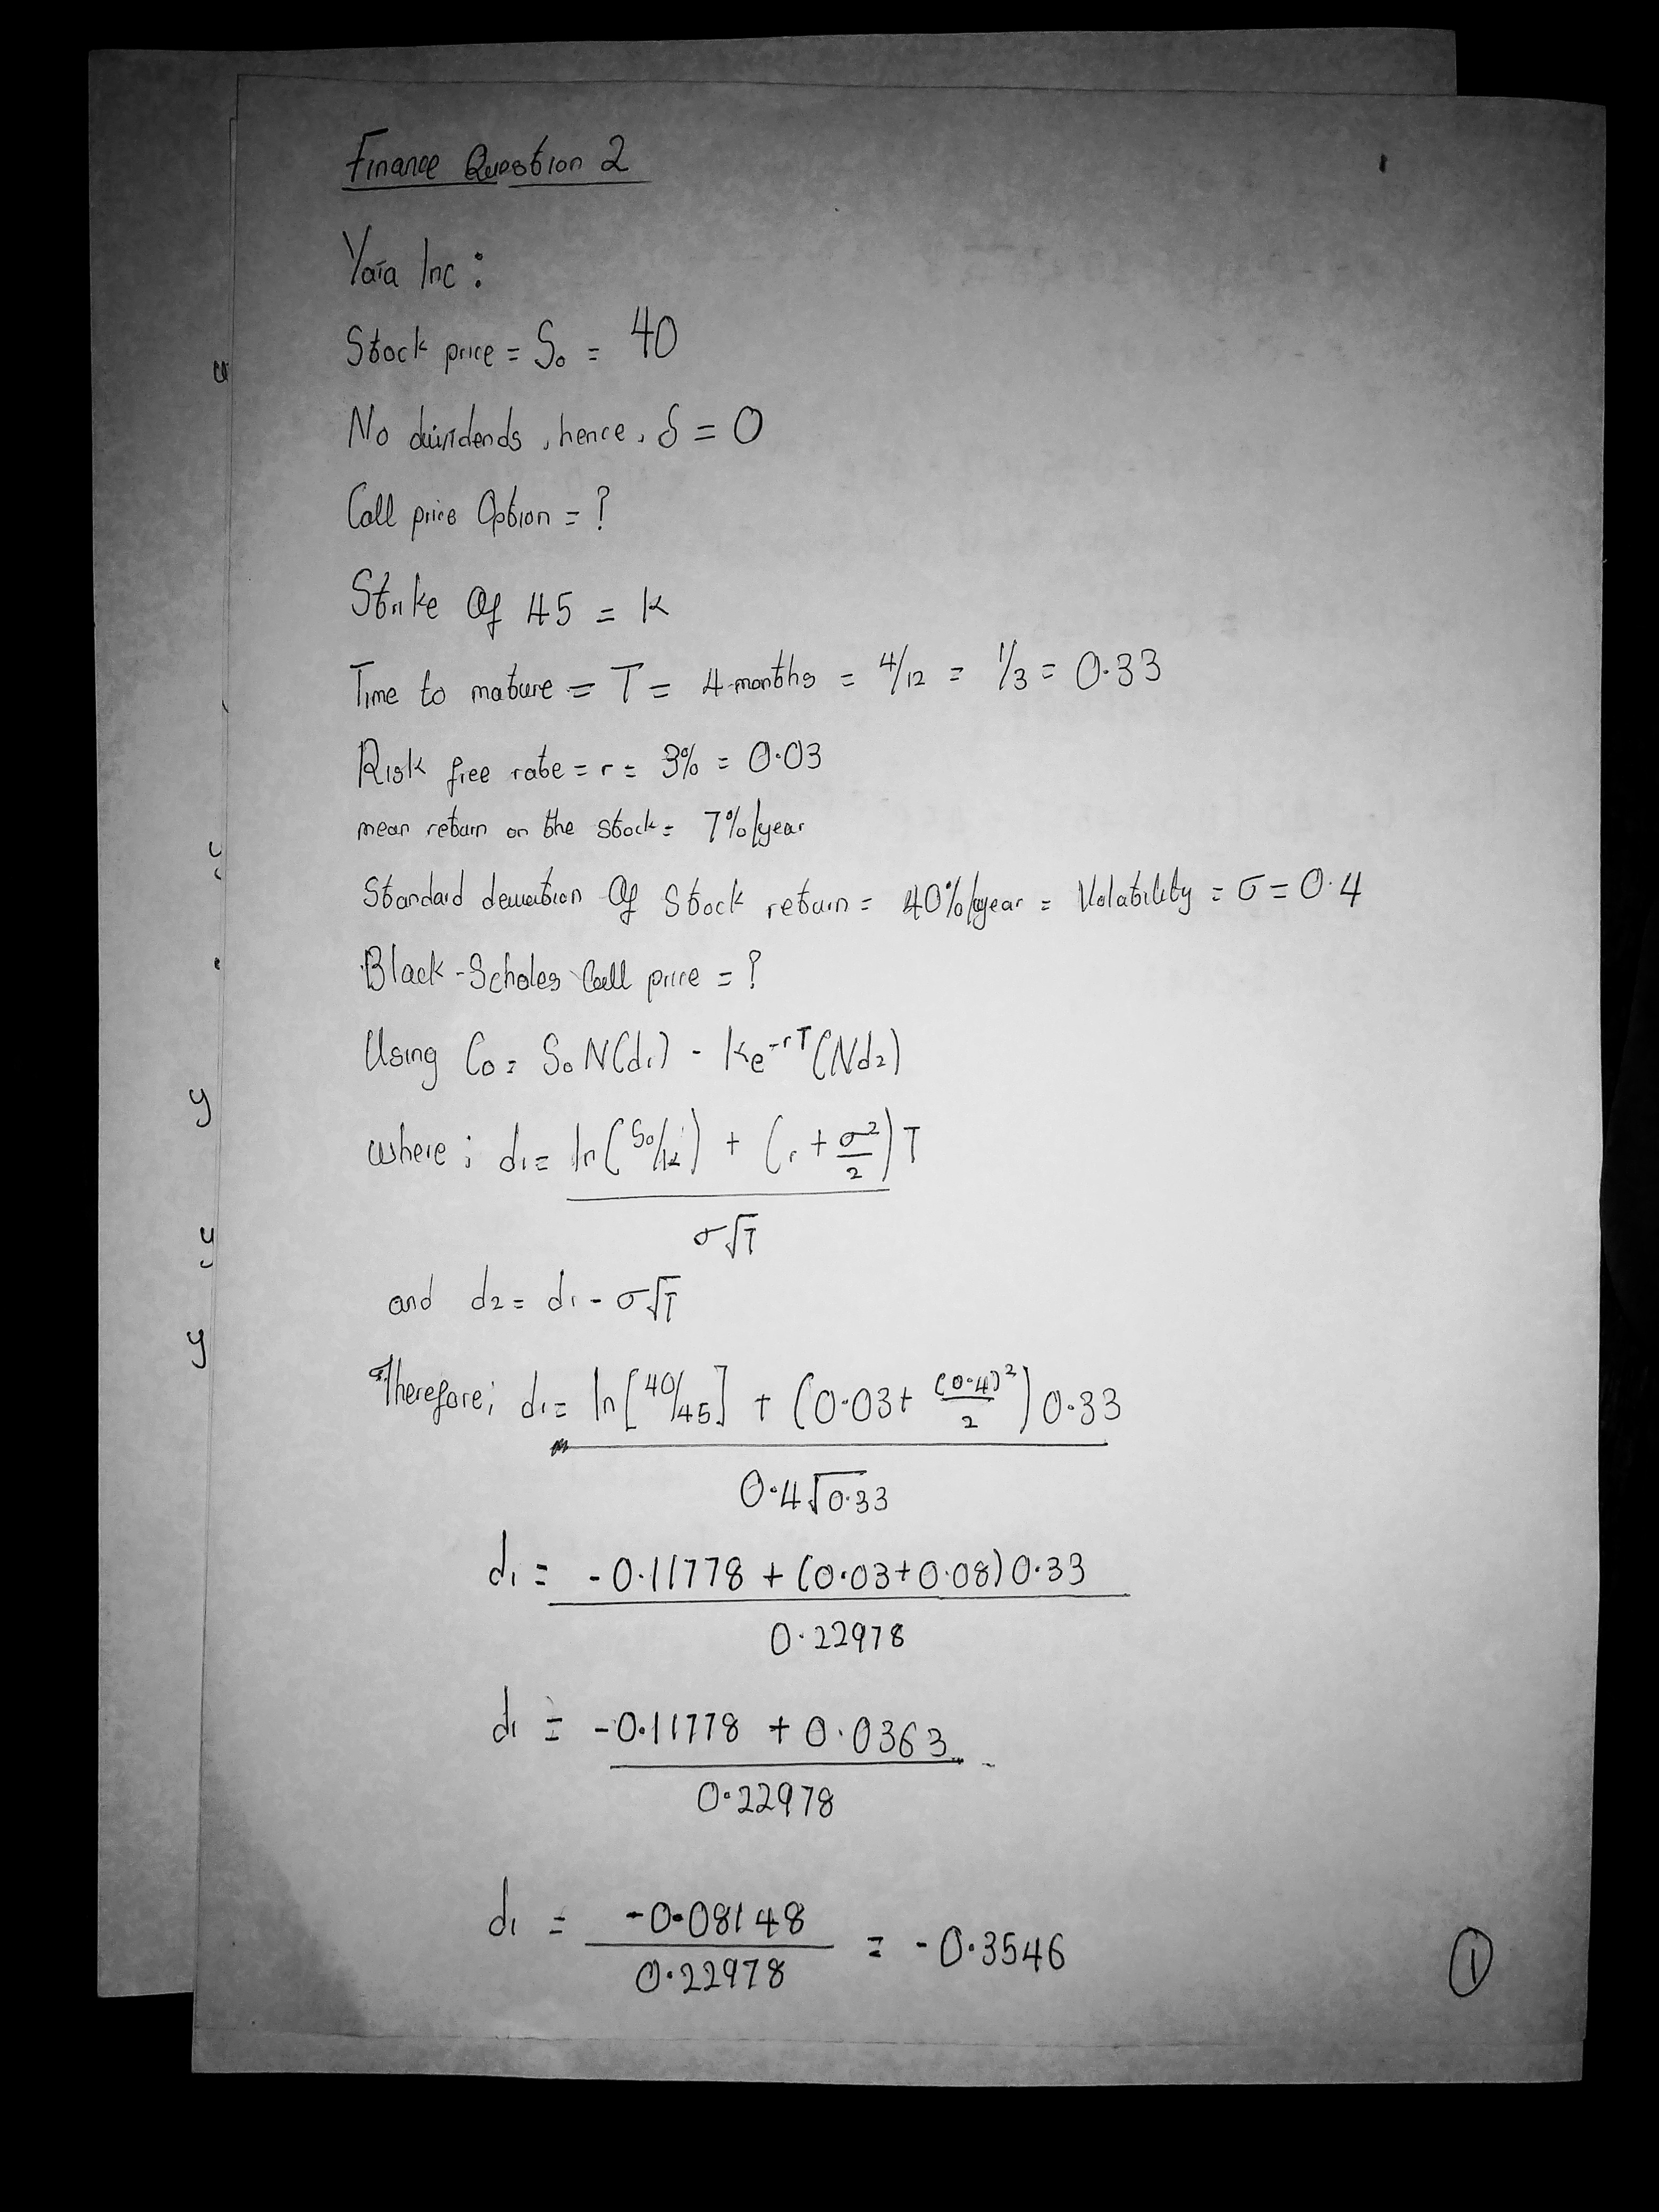 Finance Question 2
Yara Inc :
Stock price = S₀ = 40
No dividends, hence, δ = 0
Call price Option = ?
Strike Of 45 = K
Time to mature = T = 4 months = 4/12 = 1/3 = 0.33
Risk free rate = r = 3% = 0.03
mean return on the stock = 7%/year
Standard deviation Of Stock return = 40%/year = Volatility = σ = 0.4
Black-Scholes Call price = ?
Using C₀ = S₀ N(d₁) - Ke^-rT (Nd₂)
where ; d₁ = ln(S₀/K) + (r + σ²/2)T
σ√T
and d₂ = d₁ - σ√T
Therefore; d₁ = ln[40/45] + (0.03 + (0.4)²/2) 0.33
0.4√0.33
d₁ = -0.11778 + (0.03+0.08) 0.33
0.22978
d₁ = -0.11778 + 0.0363
0.22978
d₁ = -0.08148 = -0.3546
0.22978
1